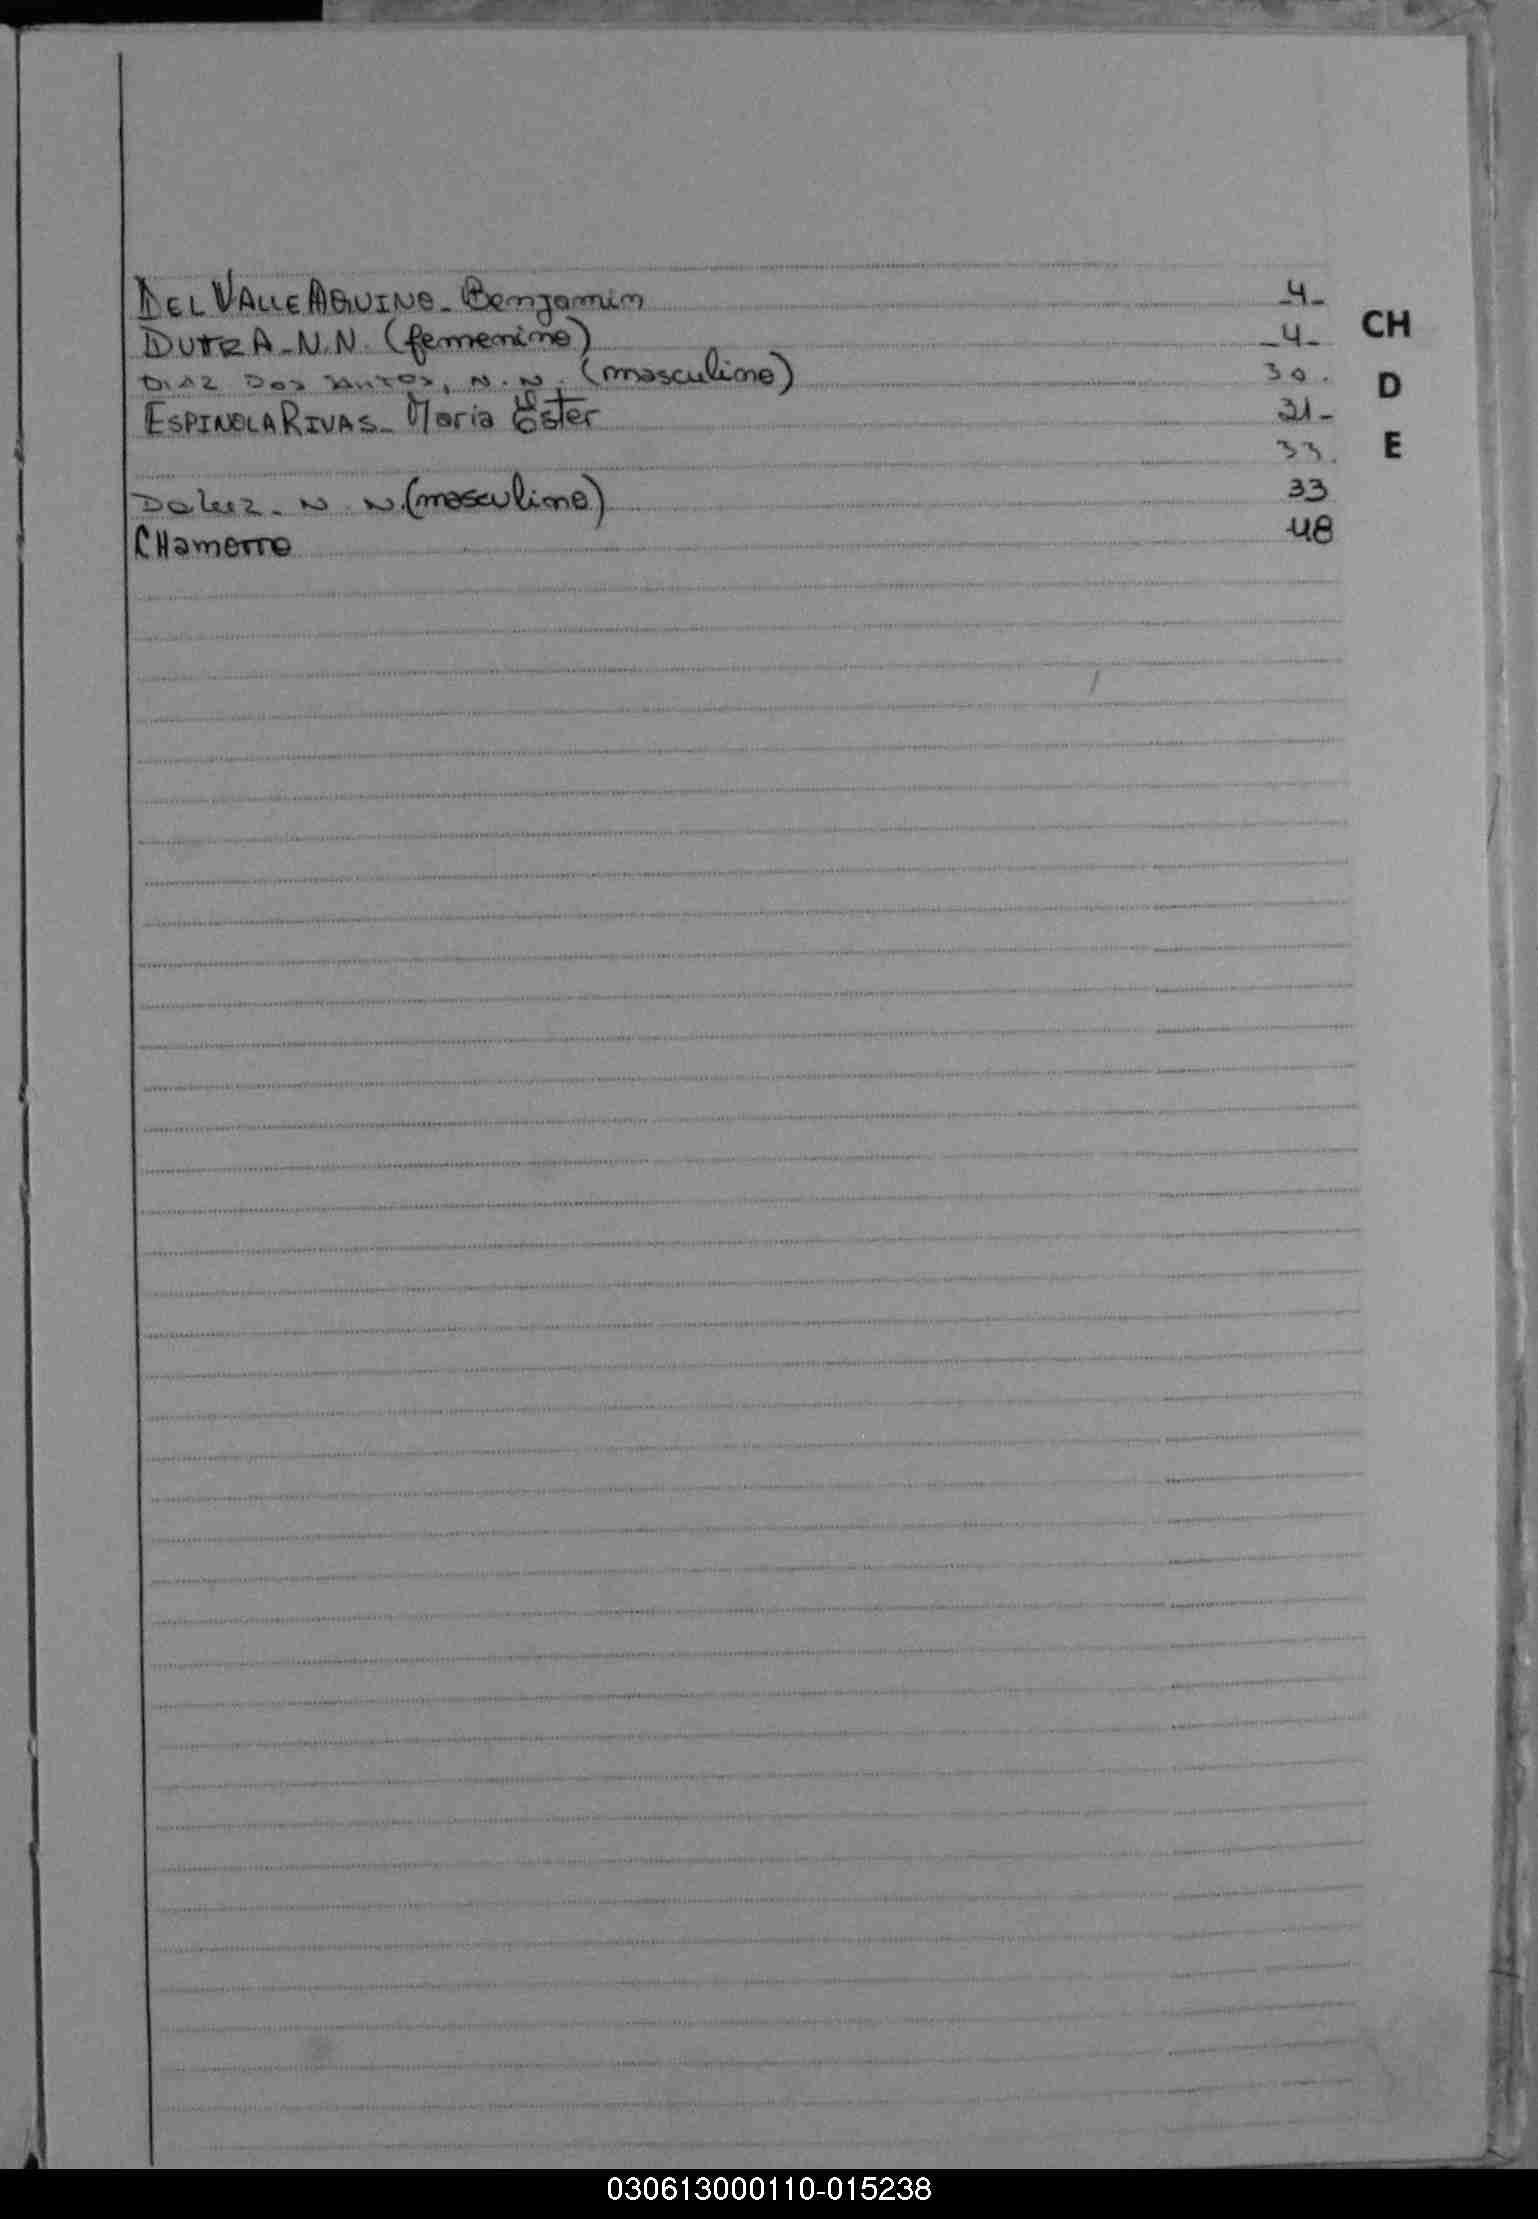 DEL VALLE AQUINO - Benjamin -4-
DUTRA - N.N. (femenino) -4-
DIAZ DOS SANTOS, N.N. (masculino) 30.
ESPINOLA RIVAS - Maria Ester 31-
33.
Daluz - N.N. (masculino) 33
CHamorro 48
CH
D
E
030613000110-015238